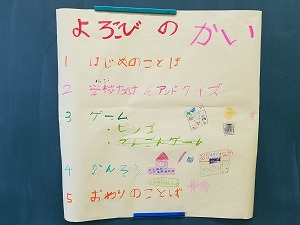 よろこびの かい
1 はじめのことば
2 学校たんけんアンドクイズ
がっこう
3 ゲーム
・ビンゴ
4 かんそう
5 おわりのことば